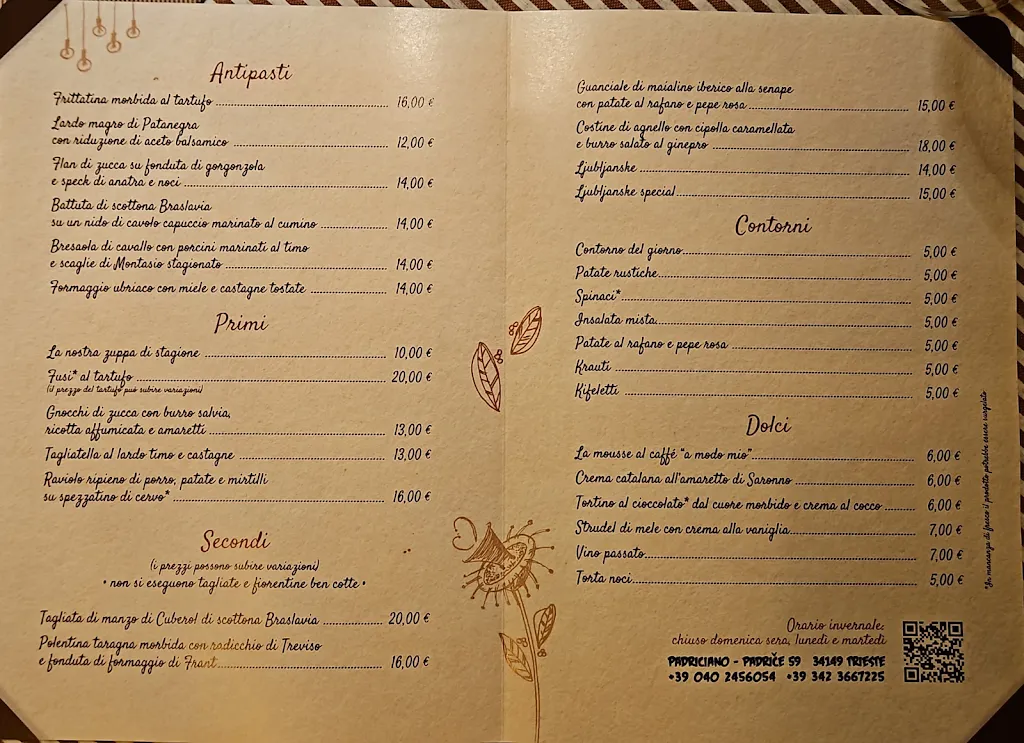 Antipasti
Frittatina morbida al tartufo 16,00 €
Lardo magro di Patanegra
con riduzione di aceto balsamico 12,00 €
Flan di zucca su fonduta di gorgonzola
e speck di anatra e noci 14,00 €
Battuta di scottona Braslavia
su un nido di cavolo capuccio marinato al cumino 14,00 €
Bresaola di cavallo con porcini marinati al timo
e scaglie di Montasio stagionato 14,00 €
Formaggio ubriaco con miele e castagne tostate 14,00 €
Primi
La nostra zuppa di stagione 10,00 €
Fusi* al tartufo 20,00 €
(il prezzo del tartufo può subire variazioni)
Gnocchi di zucca con burro salvia,
ricotta affumicata e amaretti 13,00 €
Tagliatella al lardo timo e castagne 13,00 €
Raviolo ripieno di porro, patate e mirtilli
su spezzatino di cervo* 16,00 €
Secondi
(i prezzi possono subire variazioni)
• non si eseguono tagliate e fiorentine ben cotte •
Tagliata di manzo di Cuberol di scottona Braslavia 20,00 €
Polentina taragna morbida con radicchio di Treviso
e fonduta di formaggio di Frant 16,00 €
Guanciale di maialino iberico alla senape
con patate al rafano e pepe rosa 15,00 €
Costine di agnello con cipolla caramellata
e burro salato al ginepro 18,00 €
Ljubljanske 14,00 €
Ljubljanske special 15,00 €
Contorni
Contorno del giorno 5,00 €
Patate rustiche 5,00 €
Spinaci* 5,00 €
Insalata mista 5,00 €
Patate al rafano e pepe rosa 5,00 €
Krauti 5,00 €
Kifeletti 5,00 €
Dolci
La mousse al caffé "a modo mio" 6,00 €
Crema catalana all'amaretto di Saronno 6,00 €
Tortino al cioccolato* dal cuore morbido e crema al cocco 6,00 €
Strudel di mele con crema alla vaniglia 7,00 €
Vino passato 7,00 €
Torta noci 5,00 €
*In mancanza di fresco il prodotto potrebbe essere surgelato
Orario invernale:
chiuso domenica sera, lunedì e martedì
PADRICIANO - PADRIČE 59 34149 TRIESTE
+39 040 2456054 +39 342 3667225